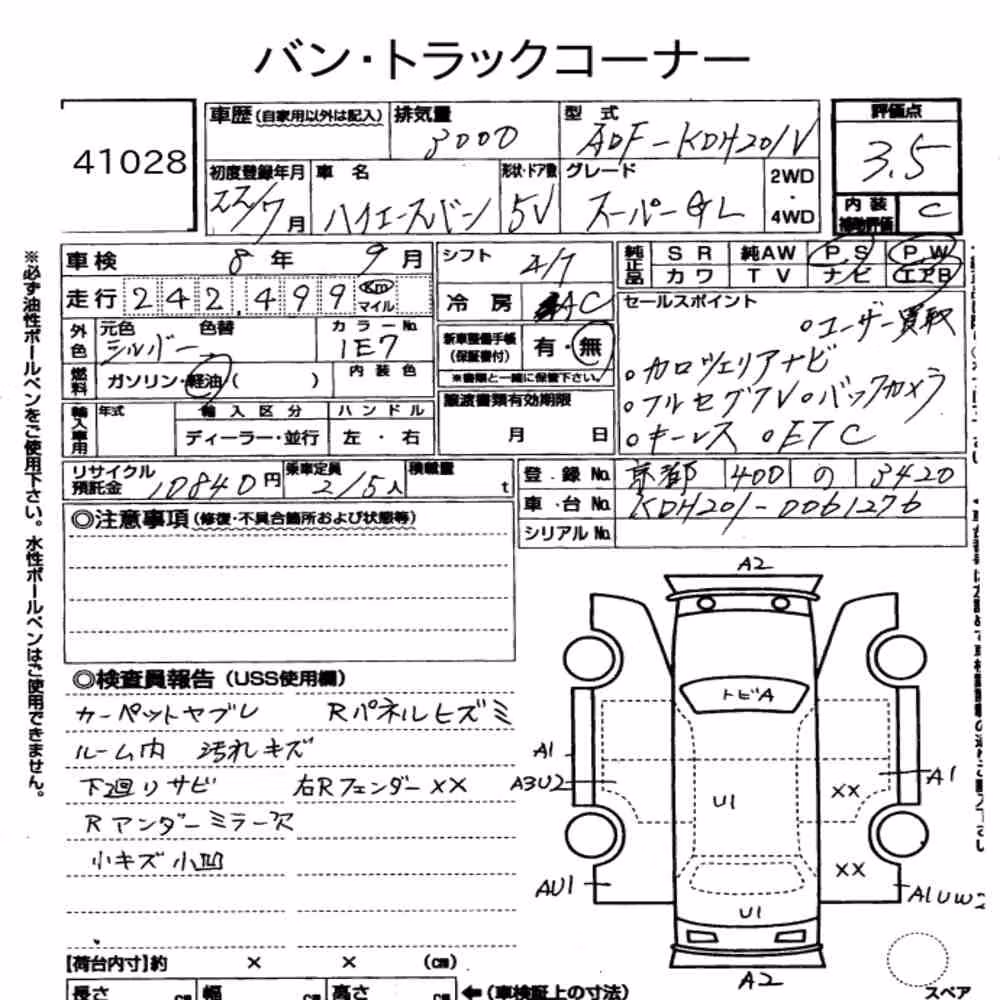 バン・トラックコーナー
41028
車歴(自家用以外は記入) 排気量 3000 型式 ADF-KDH201V
評価点 3.5
初度登録年月 22/7月 車名 ハイエースバン 形状・ドア数 5V グレード スーパーGL 2WD・4WD
内装補助評価 C
車検 8年 9月 シフト A/T
純正品 SR 純AW PS PW
カワ TV ナビ エアB
走行 242,499 Km マイル
冷房 AC
外色 元色 シルバー 色替 カラーNo. 1E7
新車整備手帳(保証書付) 有・無
※書類と一緒に保管下さい。
燃料 ガソリン・軽油( ) 内装色
輸入車用 年式 輸入区分 ハンドル
ディーラー・並行 左・右
譲渡書類有効期限
月 日
セールスポイント
○ユーザー買取
○カロツェリアナビ
○フルセグTV○バックカメラ
○キーレス ○ETC
リサイクル預託金 10840円 乗車定員 2/5人 積載量 t
登録No. 京都 400 の 3420
車台No. KDH201-0061276
シリアルNo.
◎注意事項(修復・不具合箇所および状態等)
※必ず油性ボールペンをご使用下さい。水性ボールペンはご使用できません。
◎検査員報告(USS使用欄)
カーペットヤブレ Rパネルヒズミ
ルーム内 汚れキズ
下廻りサビ 右Rフェンダー××
Rアンダーミラー欠
小キズ小凹
A2
トビA
A1
A3U2
A1
U1
××
××
AU1
A1UW2
U1
A2
スペア
【荷台内寸】約 × × (cm)
長さ cm 幅 cm 高さ cm ←(車検証上の寸法)